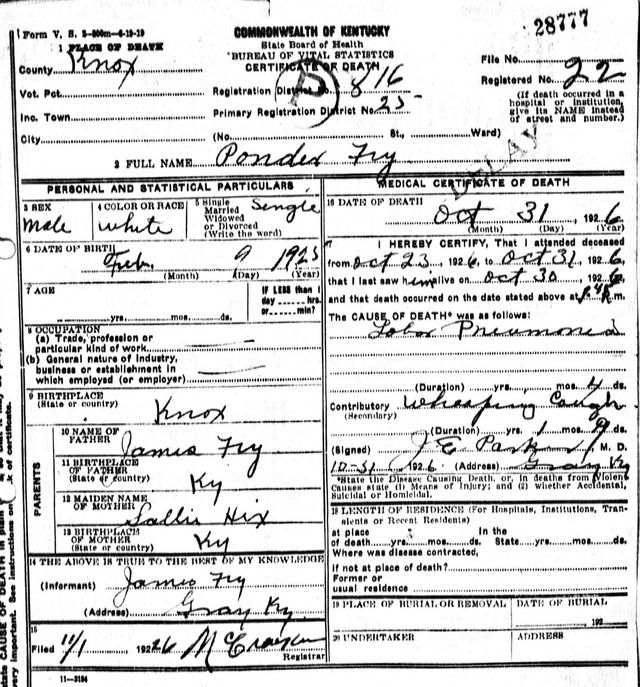 28777
Form V. S. 2-200m-4-19-19
COMMONWEALTH OF KENTUCKY
State Board of Health
BUREAU OF VITAL STATISTICS
CERTIFICATE OF DEATH
1 PLACE OF DEATH
County Knox
File No.
Registered No. 22
Vot. Pct.
Registration District No. 816
(If death occurred in a hospital or institution, give its NAME instead of street and number.)
Inc. Town
Primary Registration District No. 25
City
(No. St., Ward)
2 FULL NAME Ponder Fry
DELAY
PERSONAL AND STATISTICAL PARTICULARS
3 SEX
Male
4 COLOR OR RACE
White
5 Single
Married
Widowed
or Divorced
(Write the word)
Sengle
6 DATE OF BIRTH
Feb 9 1925
(Month) (Day) (Year)
7 AGE
yrs. mos. ds.
IF LESS than 1
day hrs.
or min?
8 OCCUPATION
(a) Trade, profession or
particular kind of work
(b) General nature of industry,
business or establishment in
which employed (or employer)
9 BIRTHPLACE
(State or country)
Knox
PARENTS
10 NAME OF
FATHER
James Fry
11 BIRTHPLACE
OF FATHER
(State or country)
Ky
12 MAIDEN NAME
OF MOTHER
Sallie Hix
13 BIRTHPLACE
OF MOTHER
(State or country)
Ky
14 THE ABOVE IS TRUE TO THE BEST OF MY KNOWLEDGE
(Informant) James Fry
(Address) Gray Ky
15
Filed 11/1 1926
Registrar
11-3184
MEDICAL CERTIFICATE OF DEATH
16 DATE OF DEATH
Oct 31, 1926
(Month) (Day) (Year)
17 I HEREBY CERTIFY, That I attended deceased
from Oct 23, 1926, to Oct 31, 1926,
that I last saw him alive on Oct 30, 1926,
and that death occurred on the date stated above at m.
The CAUSE OF DEATH* was as follows:
Lobar Pneumonia
(Duration) yrs. mos. 4 ds.
Contributory Whooping Cough
(Secondary)
(Duration) yrs. 1 mos. 9 ds.
(Signed) J E Parker, M. D.
10-31, 1926 (Address) Gray Ky
*State the Disease Causing Death, or, in deaths from Violent
Causes state (1) Means of Injury; and (2) whether Accidental,
Suicidal or Homicidal.
18 LENGTH OF RESIDENCE (For Hospitals, Institutions, Tran-
sients or Recent Residents)
at place In the
of death yrs. mos. ds. State yrs. mos. ds.
Where was disease contracted,
if not at place of death?
Former or
usual residence
19 PLACE OF BURIAL OR REMOVAL
DATE OF BURIAL
192
20 UNDERTAKER
ADDRESS